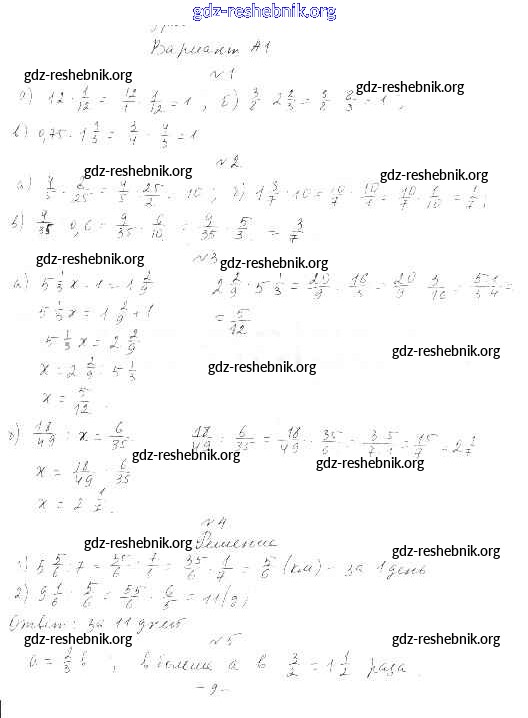 gdz-reshebnik.org
Вариант А1
gdz-reshebnik.org
№1
а) 12 · 1/12 = 12/1 · 1/12 = 1 ; б) 3/8 · 2 2/3 = 3/8 · 8/3 = 1 ,
gdz-reshebnik.org
в) 0,75 · 1 1/3 = 3/4 · 4/3 = 1
№2
gdz-reshebnik.org gdz-reshebnik.org
а) 4/5 : 2/25 = 4/5 · 25/2 = 10 ; б) 1 3/7 : 10 = 10/7 : 10/1 = 10/7 · 1/10 = 1/7 ;
gdz-reshebnik.org
в) 9/35 : 0,6 = 9/35 : 6/10 = 9/35 · 5/3 = 3/7 .
gdz-reshebnik.org №3 gdz-reshebnik.org
а) 5 1/3 x - 1 = 1 2/9 2 2/9 : 5 1/3 = 20/9 : 16/3 = 20/9 · 3/16 = 5·1/3·4 =
5 1/3 x = 1 2/9 + 1 = 5/12
5 1/3 x = 2 2/9
gdz-reshebnik.org
x = 2 2/9 : 5 1/3
gdz-reshebnik.org
x = 5/12 .
б) 18/49 : x = 6/35 18/49 : 6/35 = 18/49 · 35/6 = 3·5/7·1 = 15/7 = 2 1/7
gdz-reshebnik.org gdz-reshebnik.org
x = 18/49 : 6/35
x = 2 1/7 .
№4
gdz-reshebnik.org Решение gdz-reshebnik.org
1) 5 5/6 : 7 = 35/6 : 7/1 = 35/6 · 1/7 = 5/6 (км) - за 1 день
2) 9 1/6 : 5/6 = 55/6 · 6/5 = 11 (д)
Ответ: за 11 дней
gdz-reshebnik.org №5 gdz-reshebnik.org
а = 2/3 в ; в больше а в 3/2 = 1 1/2 раза .
- 9 -